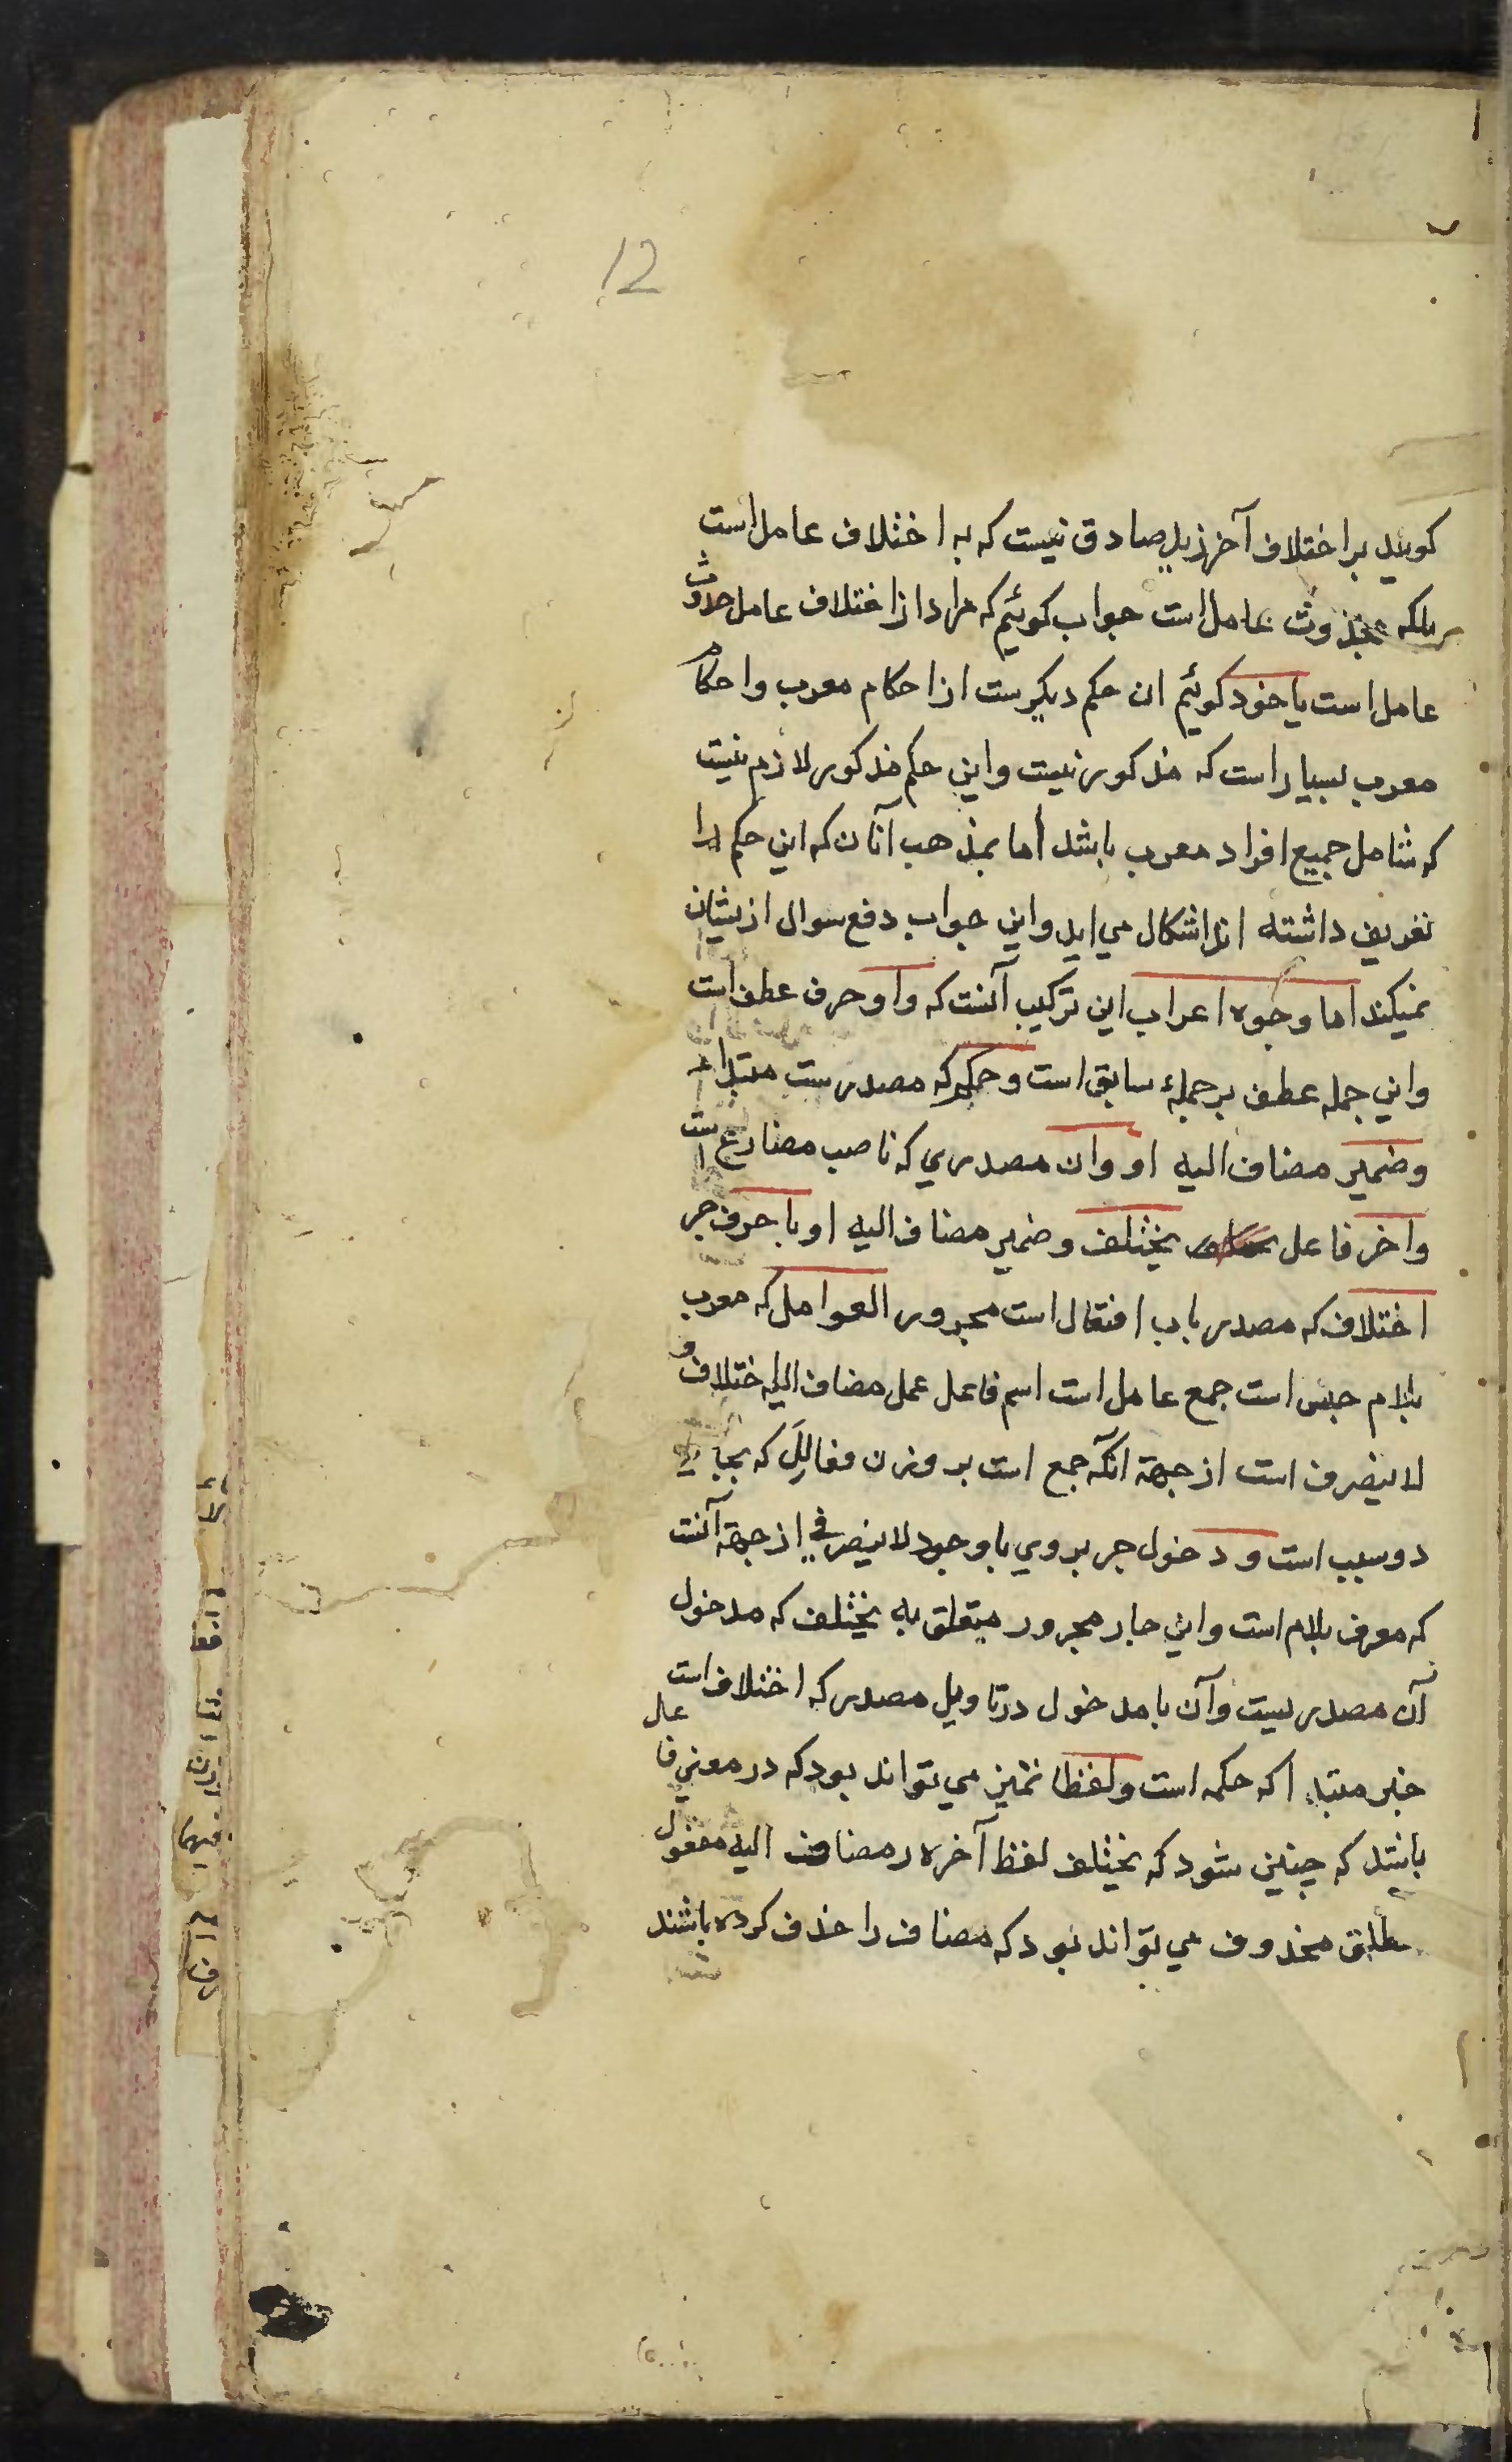 12
کویند بر اختلاف آخر زید صادق نیست که به اختلاف عامل است
بلکه بحذوث عامل است جواب کوئیم که مراد از اختلاف عامل حدوث
عامل است یا خود کوئیم ان حکم دیکرست از احکام معرب و احکام
معرب بسیار است که مذکور نیست و این حکم مذکور لازم نیست
که شامل جمیع افراد معرب باشد اما بمذهب آنان که این حکم را
تعریف داشته اند اشکال می اید و این جواب دفع سوال ازیشان
نمیکند اما وجوه اعراب این ترکیب آنست که واو حرف عطف است
و این جمله عطف بر جملهٔ سابق است و حکم که مصدرست مبتدا
و ضمیر مضاف الیه او و ان مصدری که ناصب مضارع است
و اخر فاعل یختلف و ضمیر مضاف الیه او با حرف جر
اختلاف که مصدر باب افتعال است مجرور العوامل که معرب
بلام جنس است جمع عامل است اسم فاعل عمل مضاف الیه اختلاف و
لا ینصرف است از جهة انکه جمع است بر وزن مفالِلَ که بجای
دو سبب است و دخول جر بروی با وجود لا ینصرفی از جهة آنست
که معرف بلام است و این جار مجرور متعلق به یختلف که مدخول
آن مصدریست و آن با مدخول در تاویل مصدر که اختلاف است
خبر مبتدا که حکمه است و لفظا تمیز می تواند بود که در معنی فاعل
باشد که چنین شود که یختلف لفظ آخره ر مضاف الیه مفعول
مطلق محذوف می تواند بود که مضاف را حذف کرده باشند